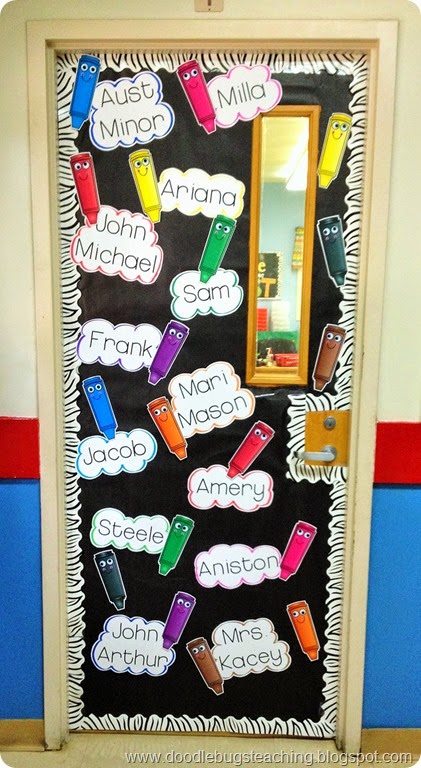 Aust
Minor
Milla
Ariana
John
Michael
Sam
Frank
Mari
Mason
Jacob
Amery
Steele
Aniston
John
Arthur
Mrs.
Kacey
www.doodlebugsteaching.blogspot.com